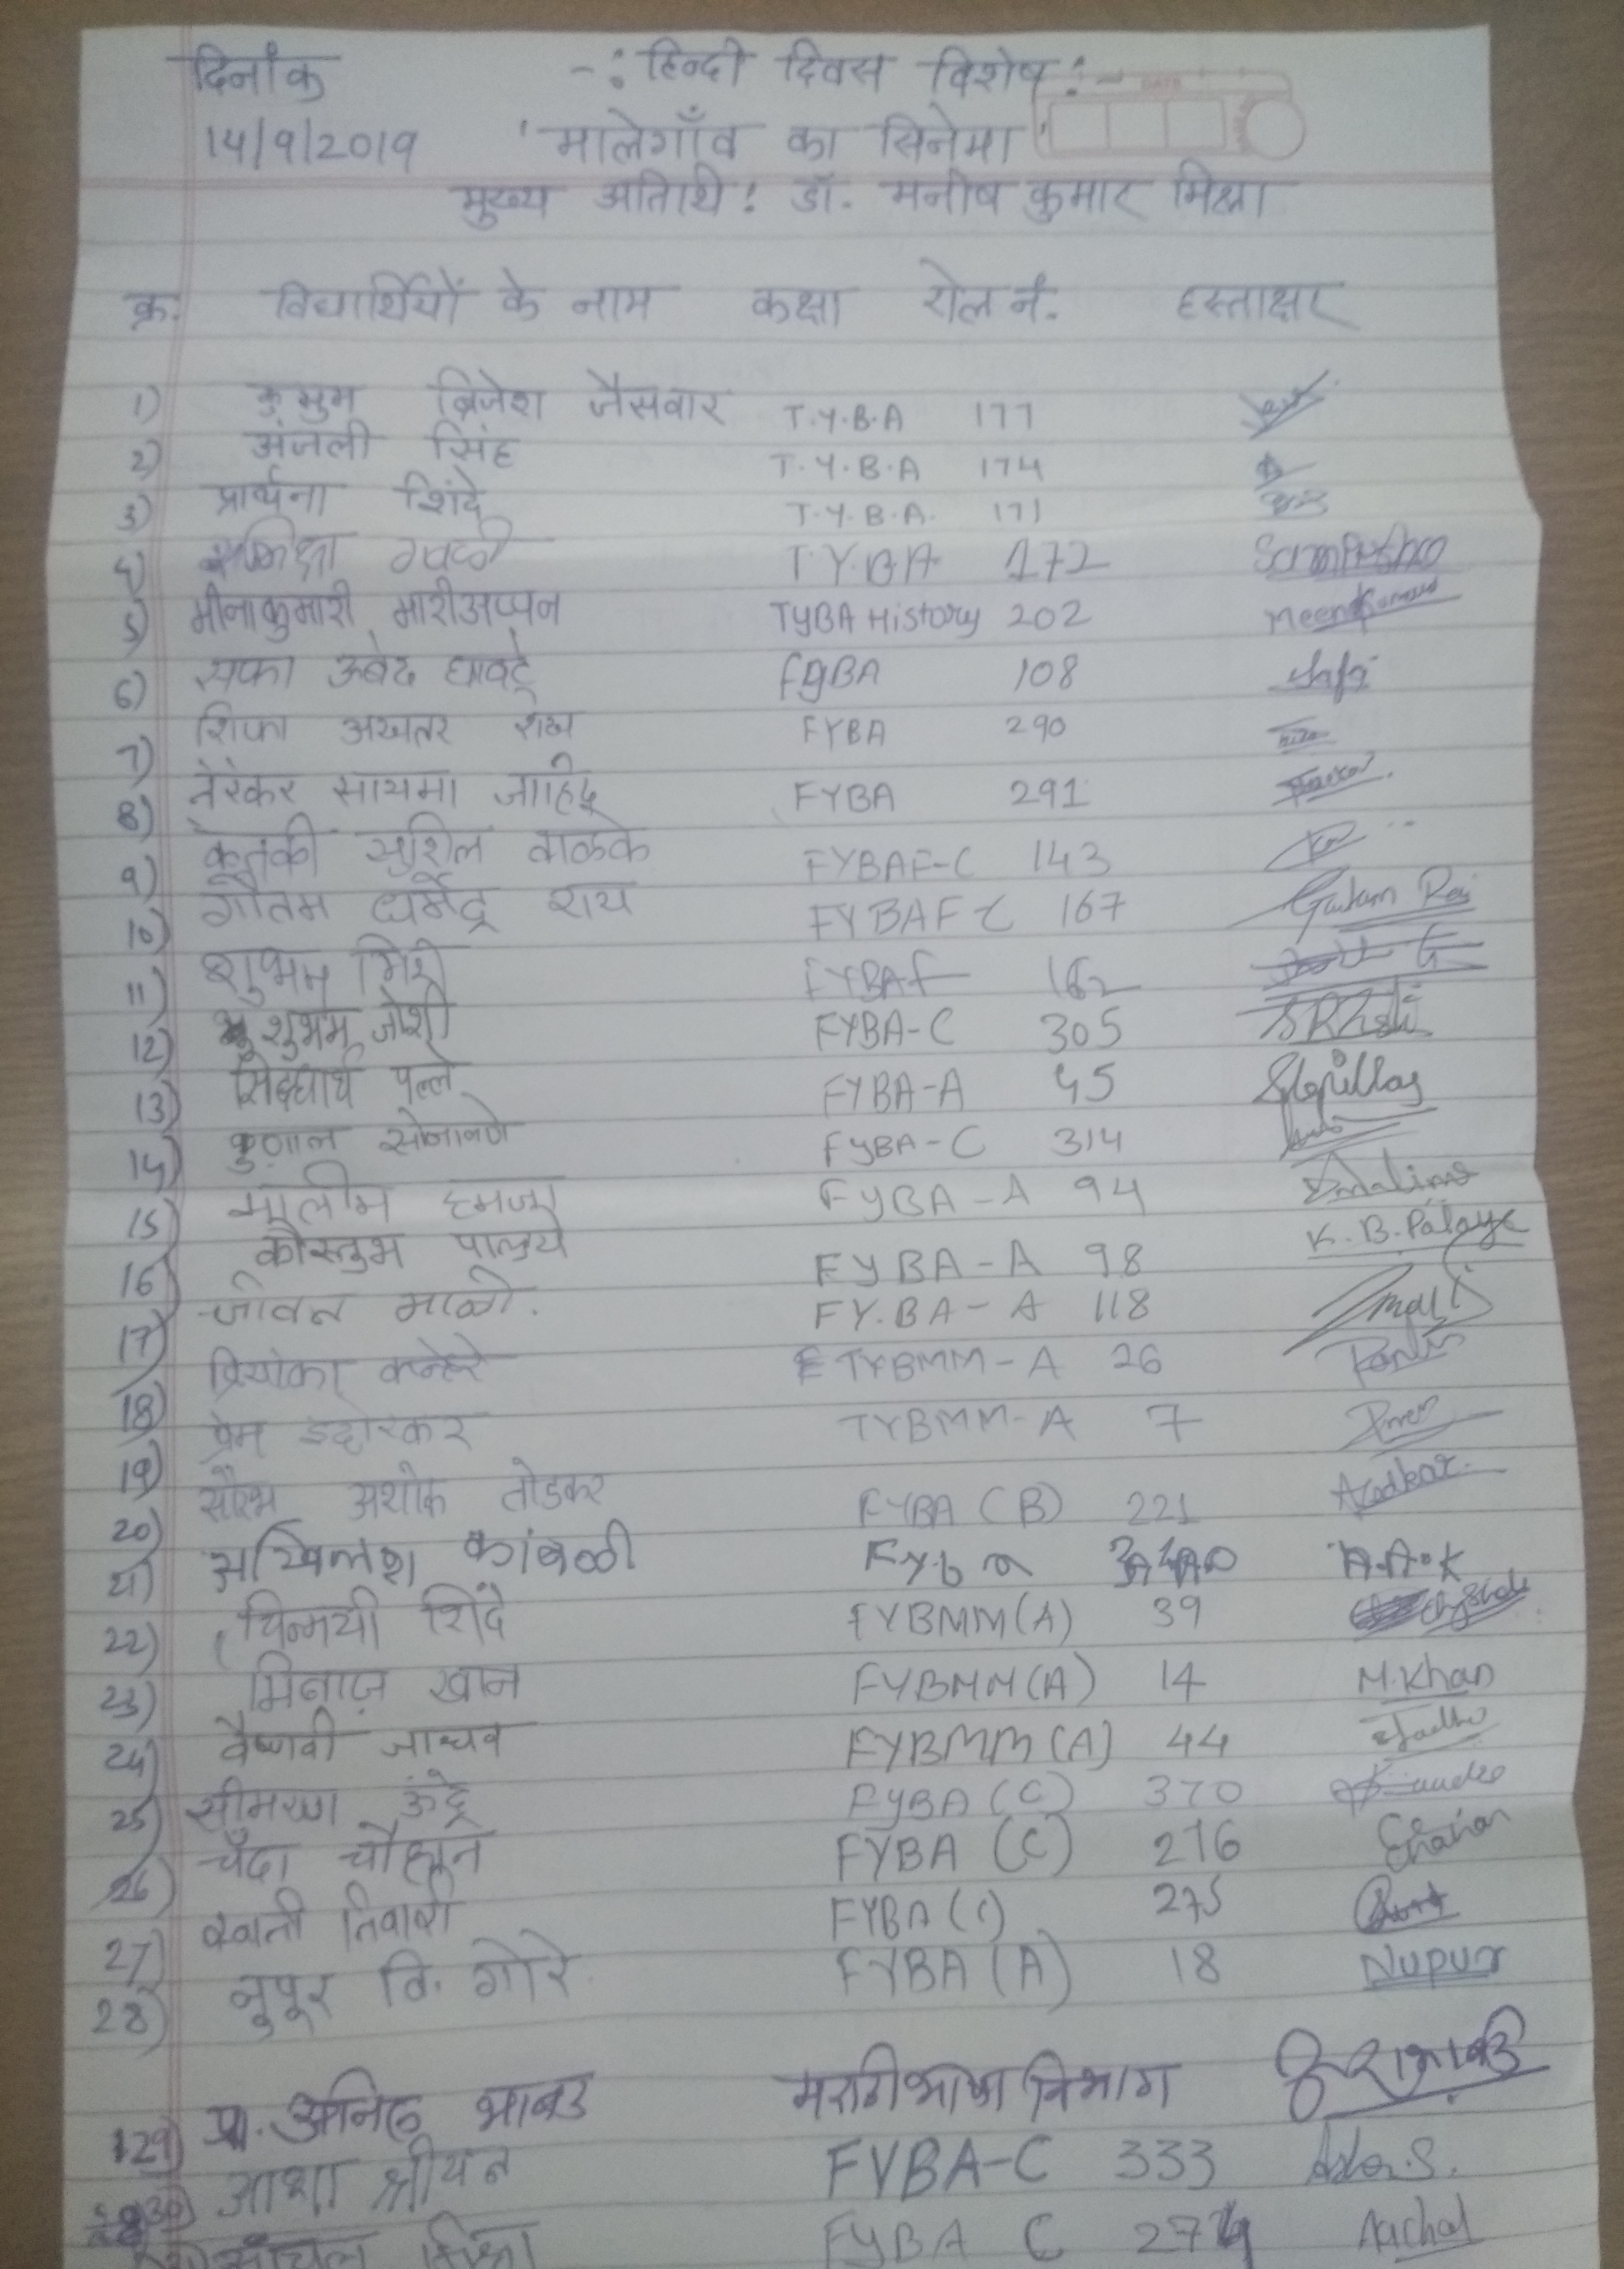 दिनांक -: हिन्दी दिवस विशेष :-
14/9/2019 'मालेगाँव का सिनेमा'
मुख्य अतिथि : डॉ. मनीष कुमार मिश्रा
क्र. विद्यार्थियों के नाम कक्षा रोल नं. हस्ताक्षर
1) कुसुम ब्रिजेश जैसवार T.Y.B.A 177
2) अंजली सिंह T.Y.B.A 174
3) प्रार्थना शिंदे T.Y.B.A. 171
4) समिक्षा गवळी T.Y.B.A 172
5) मीनाकुमारी मारीअप्पन TYBA History 202 Meenakumari
6) सफा उबेद घावटे FYBA 108 Safa
7) शिफा अख्तर शेख FYBA 290
8) तेरेकर सायमा जाहिद FYBA 291
9) केतकी सुशिल वाळके FYBAF-C 143
10) गौतम धर्मेंद्र राय FYBAF C 167 Gautam Rai
11) शुभम गिरी FYBAF 162
12) शुभम जोशी FYBA-C 305
13) सिद्धार्थ पल्ले FYBA-A 45
14) कुणाल सोनावणे FYBA-C 314
15) सालीम हमजा FYBA-A 94
16) कौस्तुभ पालये FYBA-A 98 K. B. Palaye
17) जीवन माळी. FY.BA-A 118
18) प्रियांका कन्हेरे TYBMM-A 26
19) प्रेम इंदारकर TYBMM-A 7
20) सौरभ अशोक तोडकर FYBA (B) 221
21) अखिलेश कांबळी Fyba A.A.K
22) चिन्मयी शिंदे FYBMM(A) 39
23) मिनाज़ खान FYBMM(A) 14 M.Khan
24) वैष्णवी जाधव FYBMM(A) 44
25) सीमरण ऊंद्रे FYBA (C) 370
26) चँदा चौहान FYBA (C) 276
27) स्वाती तिवारी FYBA (C) 275
28) नुपूर वि. गोरे. FYBA (A) 18 Nupur
29) प्रा. अनिल भाबड मराठी भाषा विभाग
30) आशा श्रीयन FYBA-C 333 Asha.S.
आँचल मिश्रा FYBA C 274 Aachal